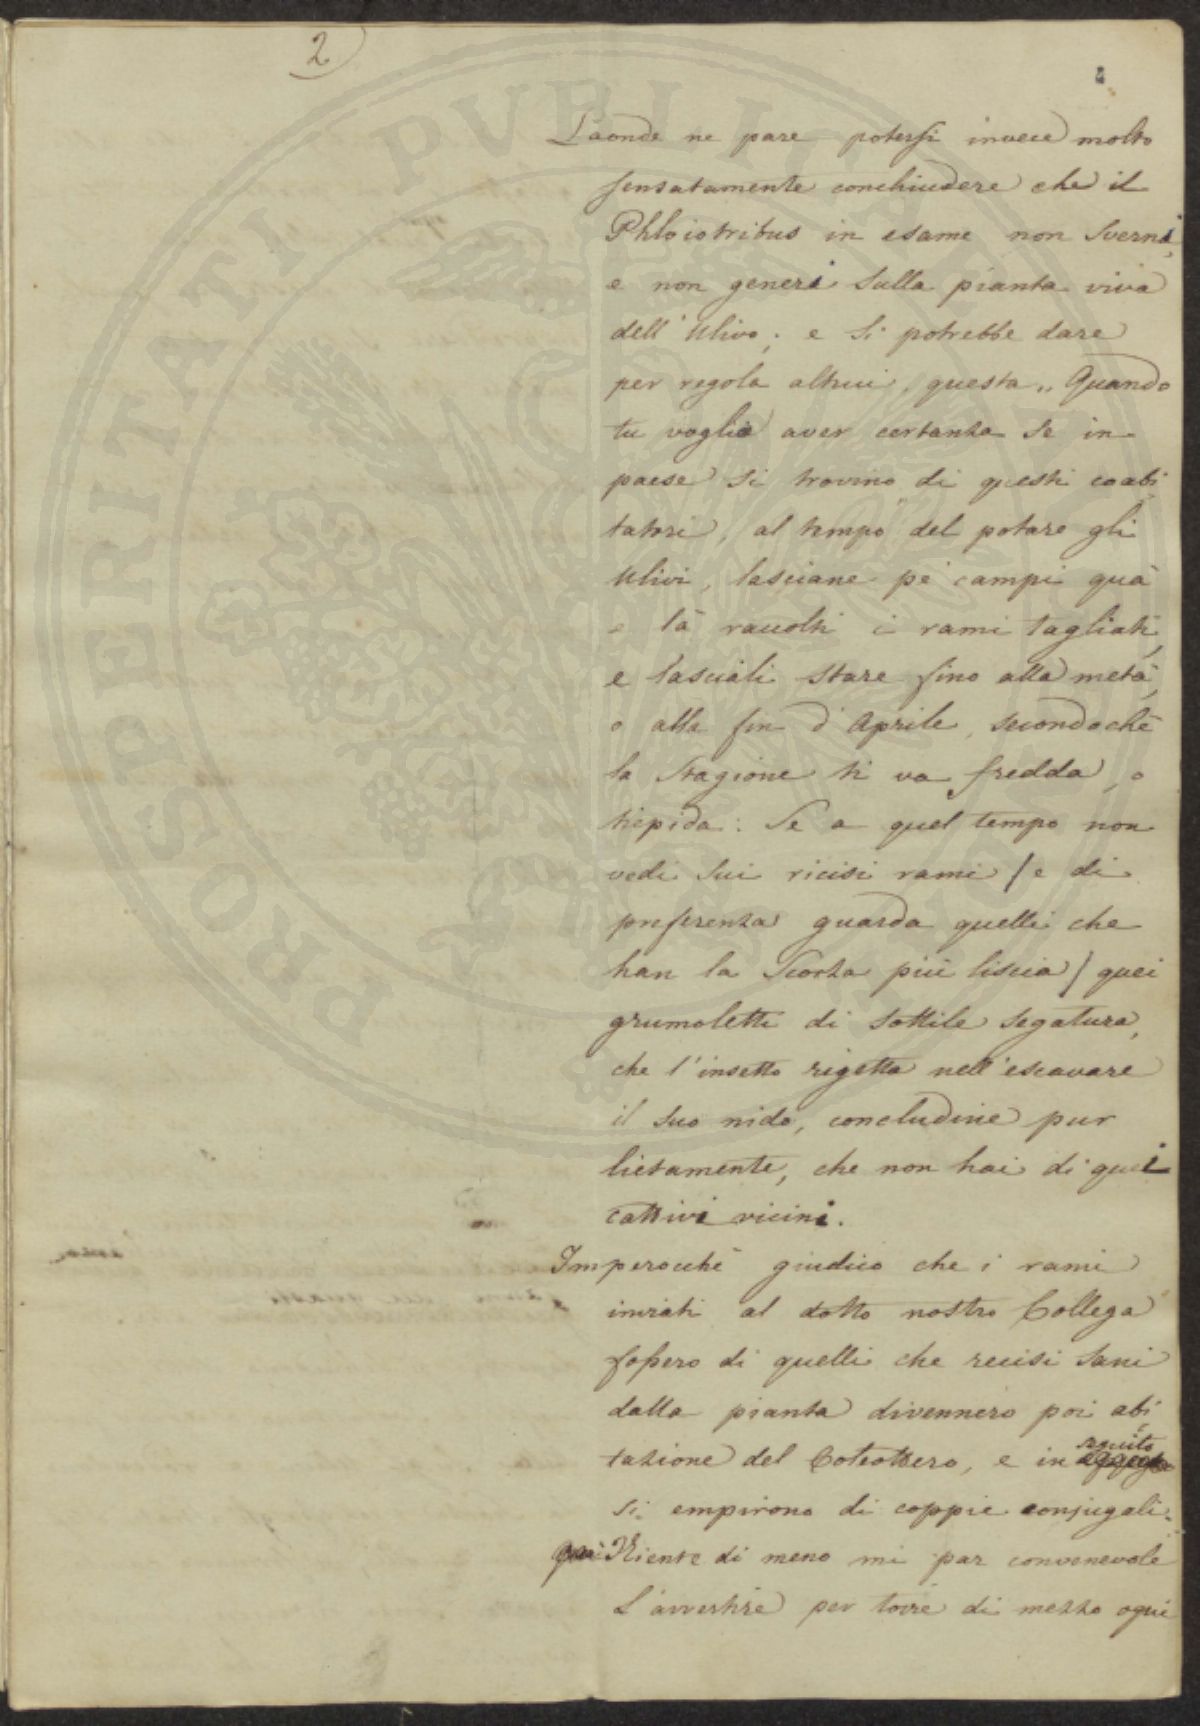 2
Laonde ne pare potersi invece molto
sensatamente conchiudere che il
Phloiotribus in esame non Sverni,
e non generi sulla pianta viva
dell'Ulivo; e si potrebbe dare
per regola altrui, questa „ Quando
tu voglia aver certanza se in
paese si trovino di questi coabi
tatori, al tempo del potare gli
Ulivi, lasciane pe' campi quà
e là raccolti i rami tagliati,
e lasciali stare fino alla metà,
o alla fin d'Aprile, secondochè
la Stagione ti va fredda, o
tiepida: Se a quel tempo non
vedi sui ricisi rami / e di
preferenza guarda quelli che
han la Scorza più liscia / quei
grumoletti di sottile segatura,
che l'insetto rigetta nell'escavare
il suo nido, concludine pur
lietamente, che non hai di quei
cattivi vicini.
Imperocchè giudico che i rami
inviati al dotto nostro Collega
fossero di quelli che recisi sani
dalla pianta divennero poi abi
tazione del Coleottero, e in seguito
si empirono di coppie conjugali.
Niente di meno mi par convenevole
L'avvertire per torre di mezzo ogni
PROSPERITATI PVBLICAE